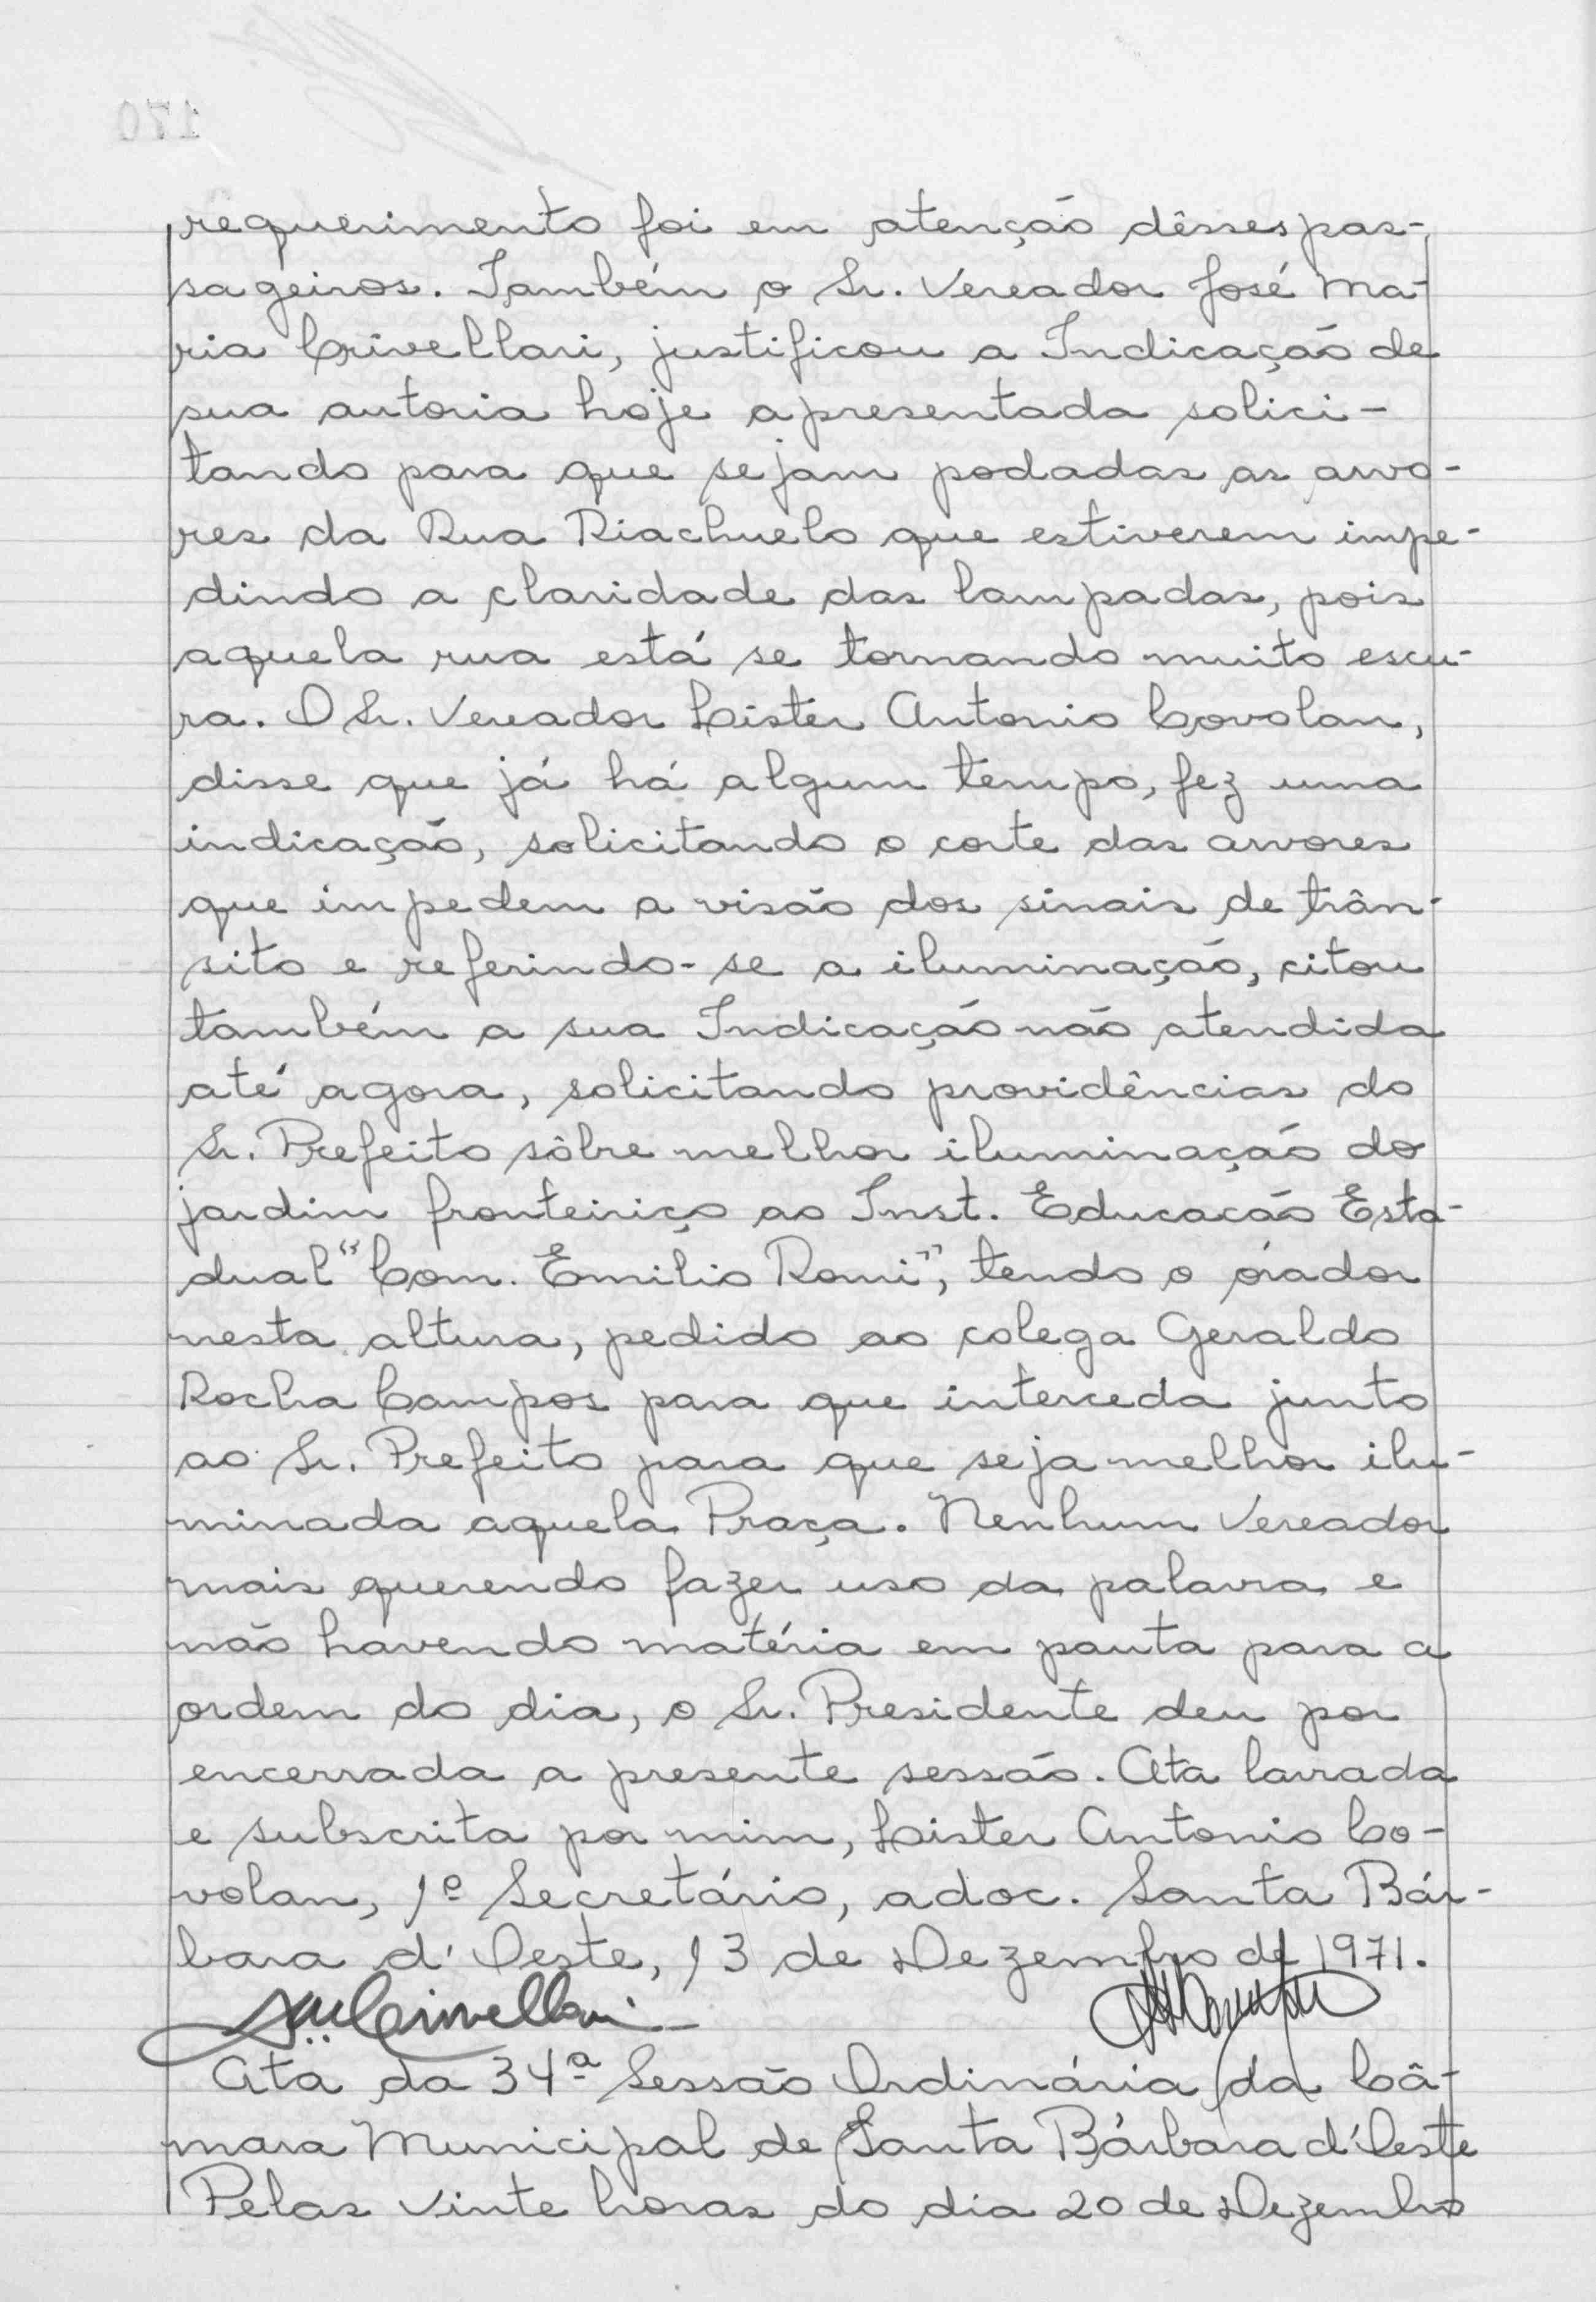 170
requerimento foi em atenção dêsses pas-
sageiros. Também o Sr. Vereador José Ma-
ria Crivellari, justificou a Indicação de
sua autoria hoje apresentada solici-
tando para que sejam podadas as arvo-
res da Rua Riachuelo que estiverem impe-
dindo a claridade das lampadas, pois
aquela rua está se tornando muito escu-
ra. O Sr. Vereador Lister Antonio Covolan,
disse que já há algum tempo, fez uma
indicação, solicitando o corte das arvores
que impedem a visão dos sinais de trân-
sito e referindo-se a iluminação, citou
também a sua Indicação não atendida
até agora, solicitando providências do
Sr. Prefeito sôbre melhor iluminação do
jardim fronteiriço ao Inst. Educacão Esta-
dual "Com. Emilio Romi", tendo o órador
nesta altura, pedido ao colega Geraldo
Rocha Campos para que interceda junto
ao Sr. Prefeito para que seja melhor ilu-
minada aquela Praça. Nenhum Vereador
mais querendo fazer uso da palavra e
não havendo matéria em pauta para a
ordem do dia, o Sr. Presidente deu por
encerrada a presente sessão. Ata lavrada
e subscrita por mim, Lister Antonio Co-
volan, 1º Secretário, adoc. Santa Bár-
bara d'Oeste, 13 de Dezembro de 1971.
Crivellari
Ata da 34ª Sessão Ordinária da Câ-
mara Municipal de Santa Bárbara d'Oeste
Pelas vinte horas do dia 20 de Dezembro